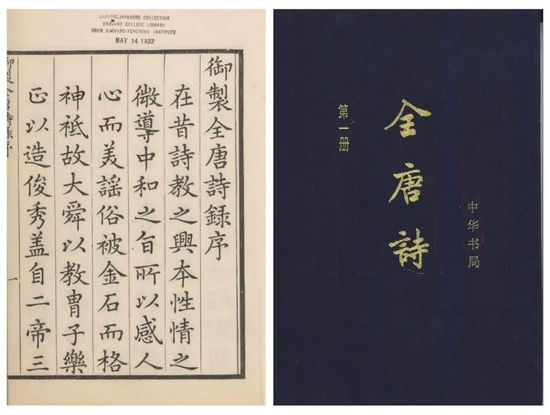 CHINESE-JAPANESE COLLECTION
HARVARD COLLEGE LIBRARY
FROM HARVARD-YENCHING INSTITUTE
MAY 14 1932
御製全唐詩録序
在昔詩教之興本性情之
微導中和之旨所以感人
心而美謡俗被金石而格
神祇故大舜以教胄子樂
正以造俊秀盖自二帝三
御製全唐詩錄序
一
全唐詩
第一册
中华书局